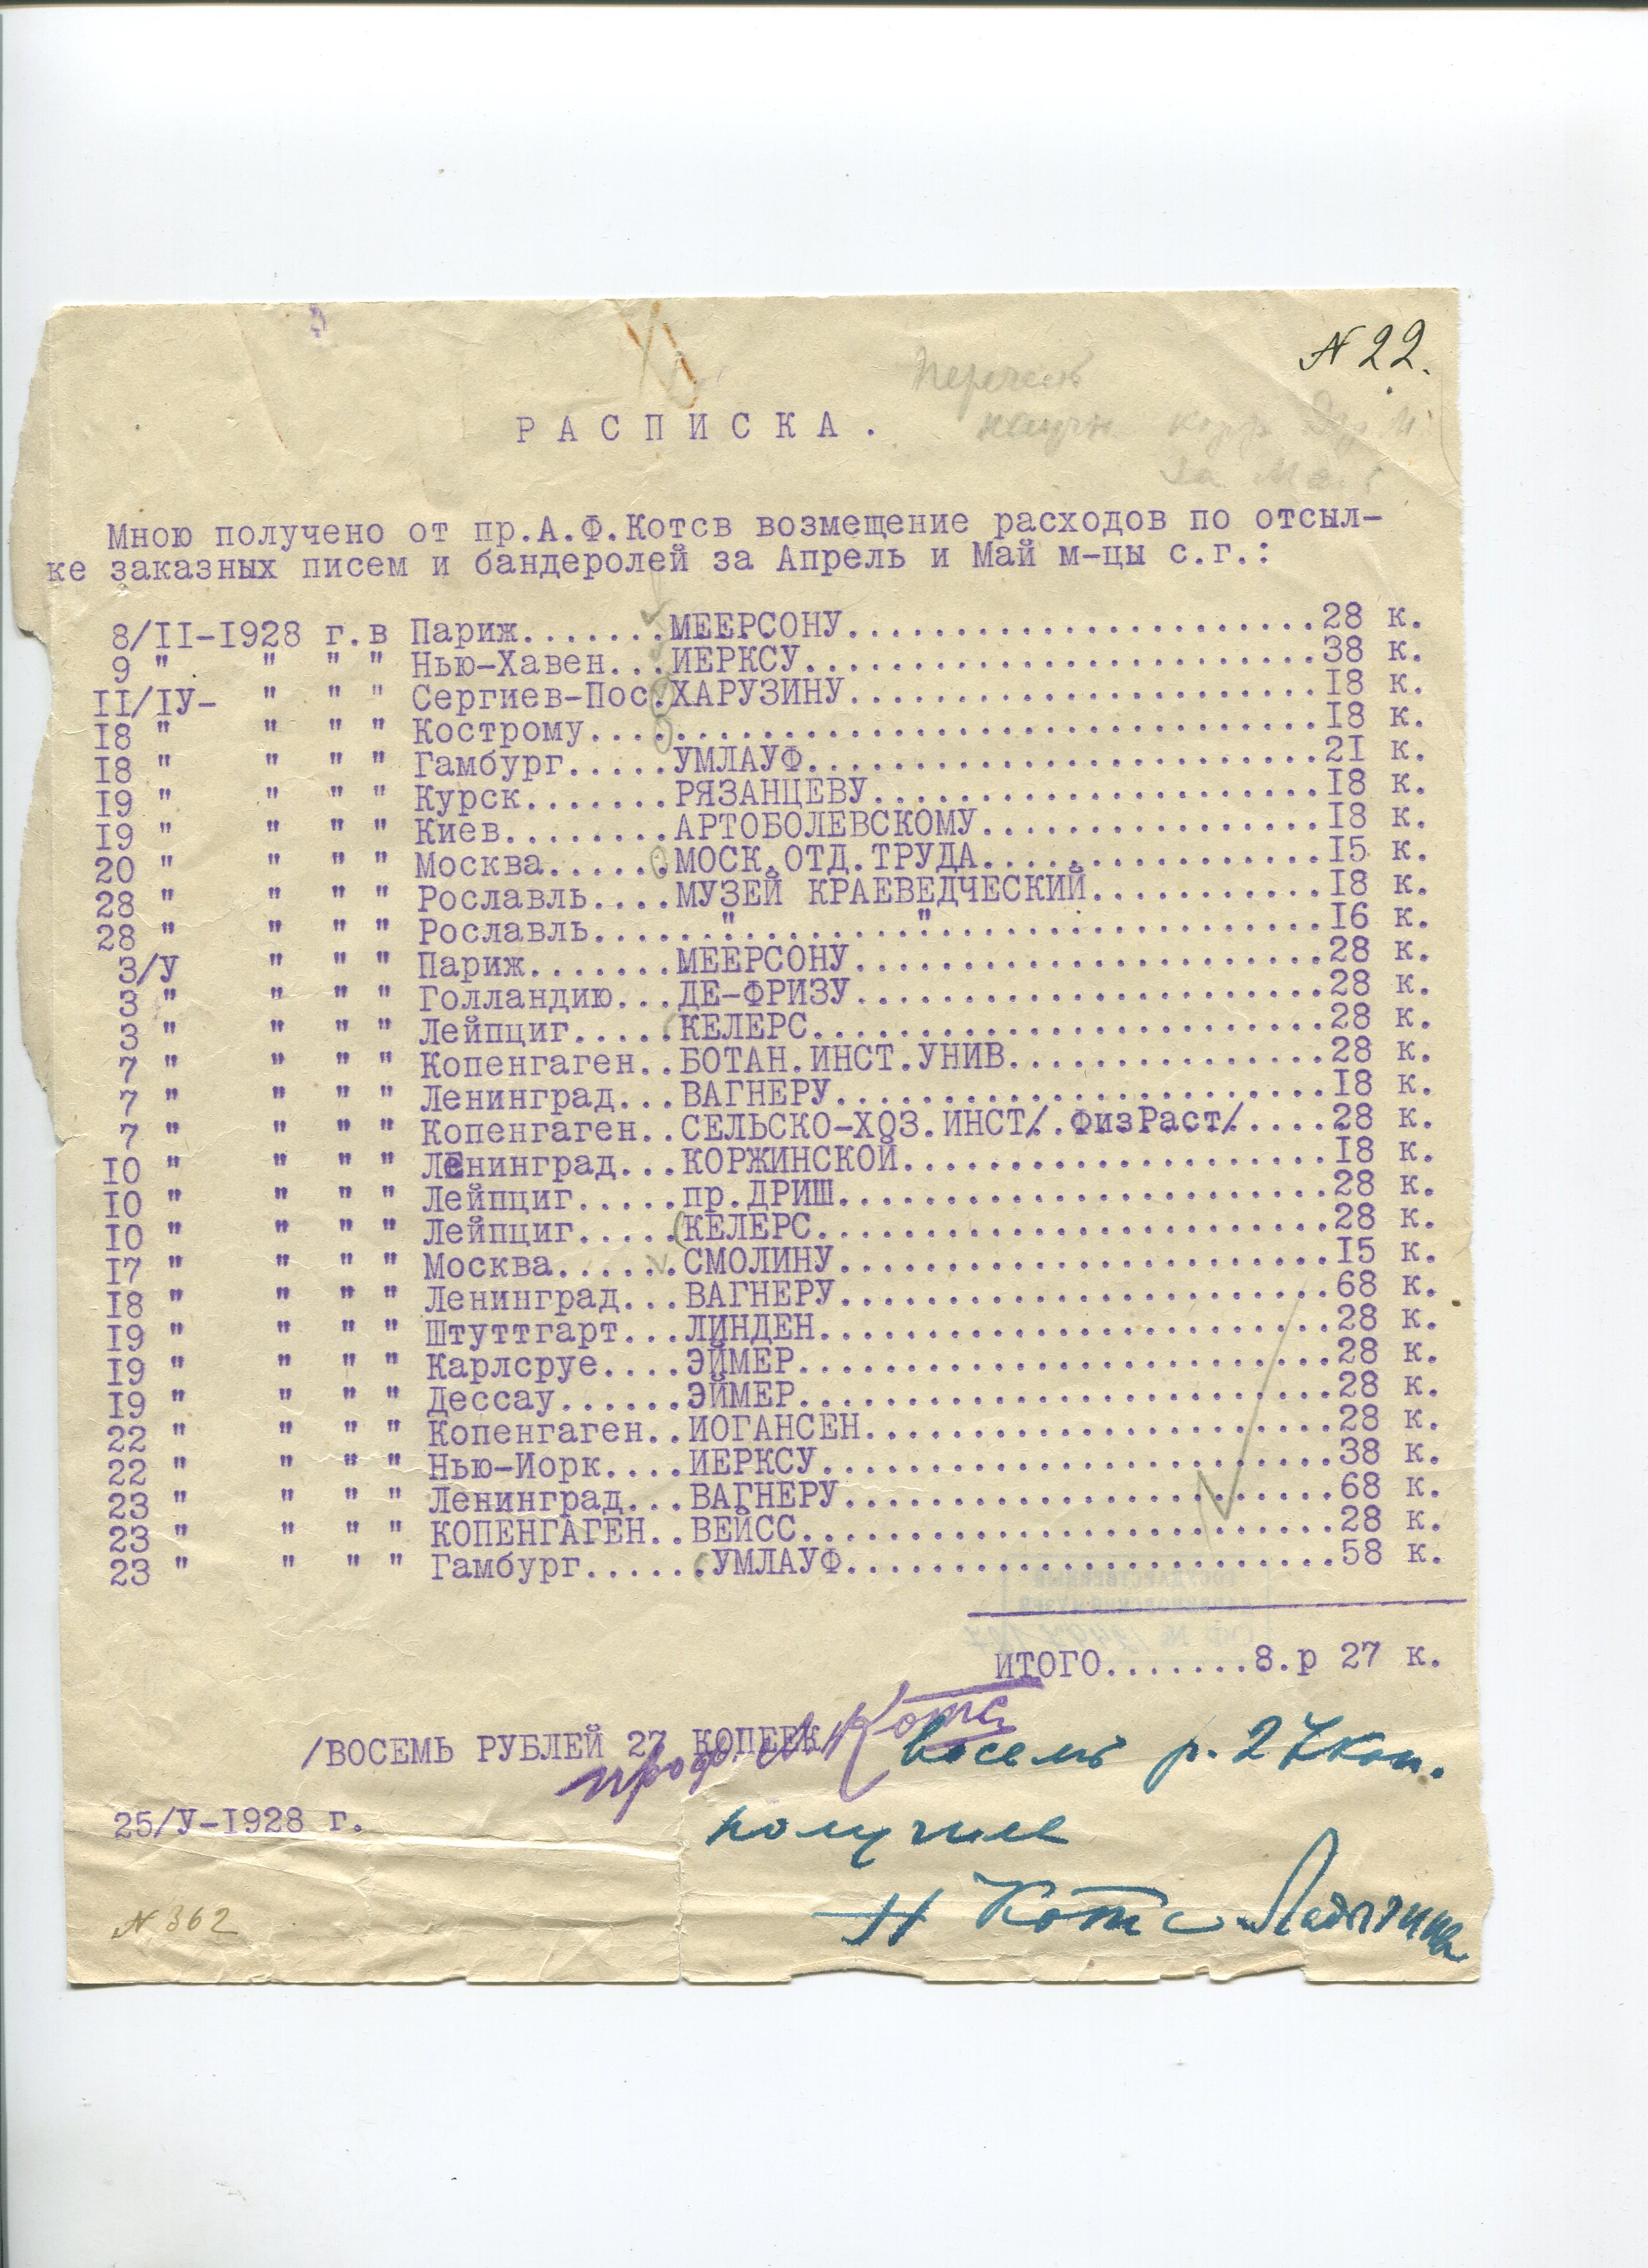 N 22.
Перечень
научн. корр
за
Р А С П И С К А .
Мною получено от пр.А.Ф.Котсв возмещение расходов по отсыл-
ке заказных писем и бандеролей за Апрель и Май м-цы с.г.:
8/II-I928 г.в Париж.......МЕЕРСОНУ......................28 к.
9 " " " " Нью-Хавен...ИЕРКСУ........................38 к.
II/IУ- " " " Сергиев-Пос.ХАРУЗИНУ......................I8 к.
I8 " " " " Кострому..................................I8 к.
I8 " " " " Гамбург.....УМЛАУФ........................2I к.
I9 " " " " Курск.......РЯЗАНЦЕВУ.....................I8 к.
I9 " " " " Киев........АРТОБОЛЕВСКОМУ................I8 к.
20 " " " " Москва......МОСК.ОТД.ТРУДА................I5 к.
28 " " " " Рославль....МУЗЕЙ КРАЕВЕДЧЕСКИЙ...........I8 к.
28 " " " " Рославль......".........".................I6 к.
3/У " " " Париж.......МЕЕРСОНУ......................28 к.
3 " " " " Голландию...ДЕ-ФРИЗУ......................28 к.
3 " " " " Лейпциг.....КЕЛЕРС........................28 к.
7 " " " " Копенгаген..БОТАН.ИНСТ.УНИВ...............28 к.
7 " " " " Ленинград...ВАГНЕРУ.......................I8 к.
7 " " " " Копенгаген..СЕЛЬСКО-ХОЗ.ИНСТ/.ФизРаст/....28 к.
I0 " " " " ЛЕнинград...КОРЖИНСКОЙ....................I8 к.
I0 " " " " Лейпциг.....пр.ДРИШ.......................28 к.
I0 " " " " Лейпциг.....КЕЛЕРС........................28 к.
I7 " " " " Москва......СМОЛИНУ.......................I5 к.
I8 " " " " Ленинград...ВАГНЕРУ.......................68 к.
I9 " " " " Штуттгарт...ЛИНДЕН........................28 к.
I9 " " " " Карлсруе....ЭЙМЕР.........................28 к.
I9 " " " " Дессау......ЭЙМЕР.........................28 к.
22 " " " " Копенгаген..ИОГАНСЕН......................28 к.
22 " " " " Нью-Иорк....ИЕРКСУ........................38 к.
23 " " " " Ленинград...ВАГНЕРУ.......................68 к.
23 " " " " КОПЕНГАГЕН..ВЕЙСС.........................28 к.
23 " " " " Гамбург......УМЛАУФ.......................58 к.
ИТОГО.......8.р 27 к.
/ВОСЕМЬ РУБЛЕЙ 27 КОПЕЕК/ восемь р. 27 коп.
проф. А Котс
25/У-I928 г.
получила
Н Котс-Ладыгина
N 362